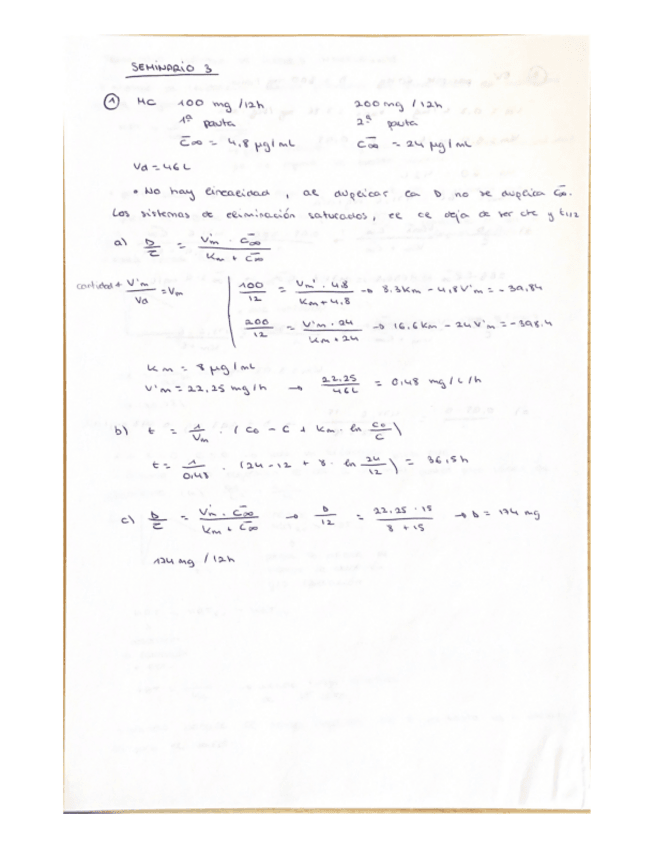 SEMINARIO 3
① MC 100 mg /12h 200 mg /12h
1ª pauta 2ª pauta
C̄∞ = 4,8 µg/mL C̄∞ = 24 µg/mL
Vd = 46 L
• No hay linealidad, al duplicar la D no se duplica C̄∞.
Los sistemas de eliminación saturados, el Cl deja de ser cte y t1/2
a) D/τ = V'm · C̄∞ / Km + C̄∞
cantidad + V'm/Vd = Vm
100/12 = Vm' · 4,8 / Km + 4,8 → 8.3Km - 4,8V'm = - 39,84
200/12 = V'm · 24 / Km + 24 → 16,6Km - 24V'm = - 398.4
Km = 8 µg/mL
V'm = 22,25 mg/h → 22,25/46L = 0,48 mg/L/h
b) t = 1/Vm · (C0 - C + Km · ln C0/C)
t = 1/0,48 · (24 - 12 + 8 · ln 24/12) = 36,5h
c) D/τ = V'm · C̄∞ / Km + C̄∞ → D/12 = 22,25 · 15 / 8 + 15 → D = 174 mg
174 mg /12h